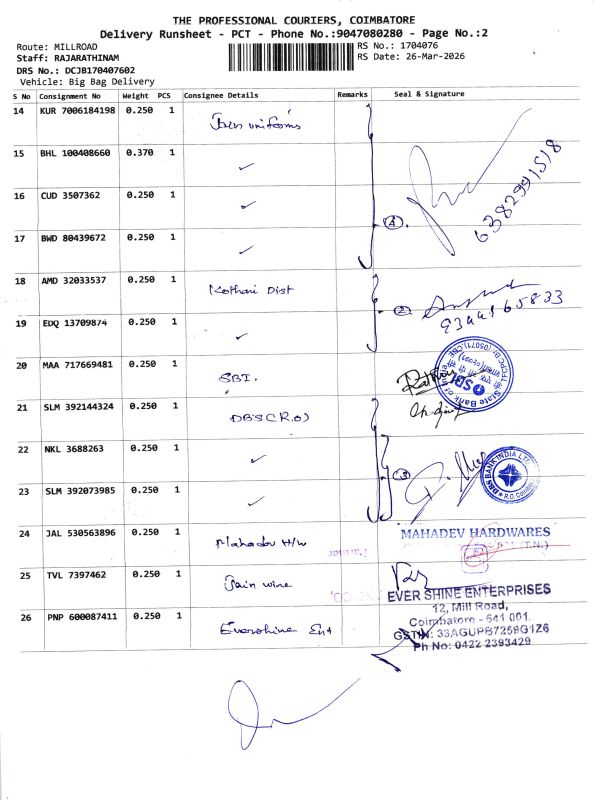 THE PROFESSIONAL COURIERS, COIMBATORE
Delivery Runsheet - PCT - Phone No.:9047080280 - Page No.:2
Route: MILLROAD
RS No.: 1704076
Staff: RAJARATHINAM
RS Date: 26-Mar-2026
DRS No.: DCJB170407602
Vehicle: Big Bag Delivery
S No Consignment No Weight PCS Consignee Details Remarks Seal & Signature
14 KUR 7006184198 0.250 1 uniforms
15 BHL 100408660 0.370 1 ✓
16 CUD 3507362 0.250 1 ✓
17 BWD 80439672 0.250 1 ✓
4
6382991518
18 AMD 32033537 0.250 1 Kothari Dist
19 EDQ 13709874 0.250 1 ✓
2
9344165833
20 MAA 717669481 0.250 1 SBI.
State Bank of
SBI
21 SLM 392144324 0.250 1 DBS(R.O)
22 NKL 3688263 0.250 1 ✓
23 SLM 392073985 0.250 1 ✓
3
DBS BANK INDIA LTD
24 JAL 530563896 0.250 1 Mahadev H/w
MAHADEV HARDWARES
(T.N.)
25 TVL 7397462 0.250 1 Jain wire
26 PNP 600087411 0.250 1 Evershine Ent
EVER SHINE ENTERPRISES
12, Mill Road,
Coimbatore - 641 001.
GSTIN: 33AGUPB7259G1Z6
Ph No: 0422 2393429